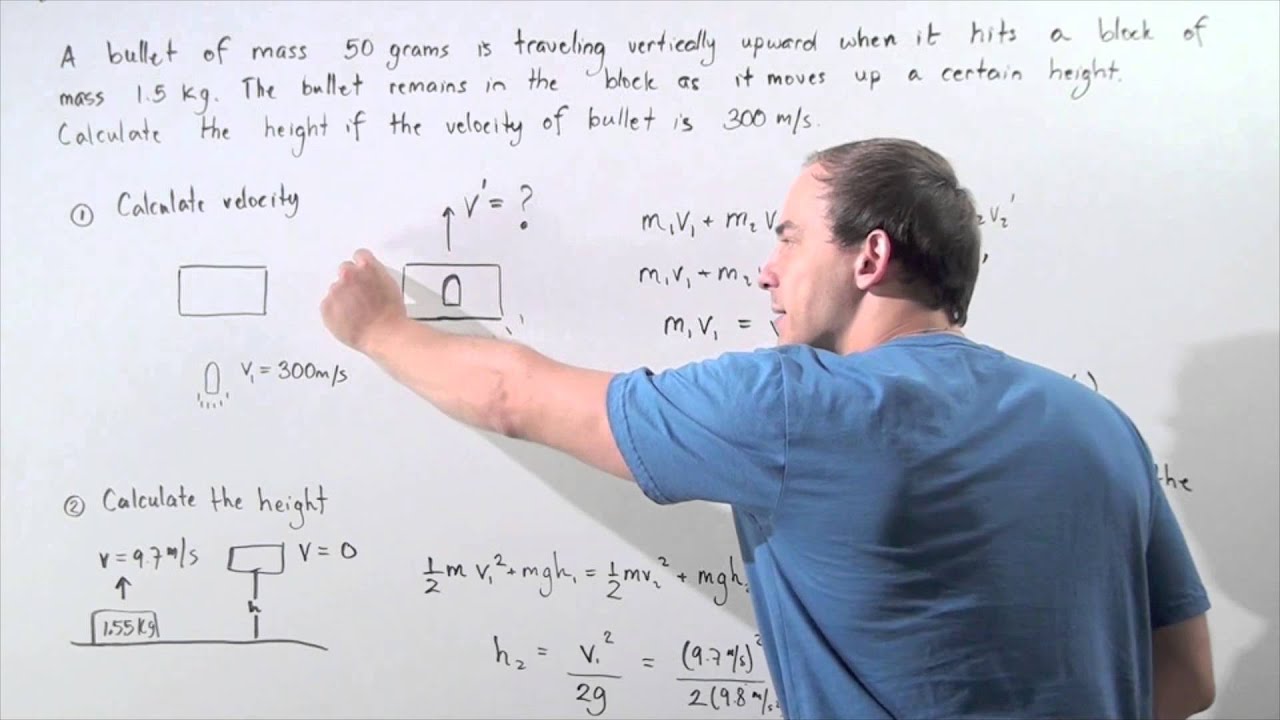 A bullet of mass 50 grams is traveling vertically upward when it hits a block of
mass 1.5 kg. The bullet remains in the block as it moves up a certain height.
Calculate the height if the velocity of bullet is 300 m/s.
① Calculate velocity
V' = ?
V₁ = 300m/s
m₁V₁ + m₂V
₂V₂'
m₁V₁ + m₂
m₁V₁ =
the
② Calculate the height
V = 9.7 m/s
V = 0
h
1.55 kg
½mV₁² + mgh₁ = ½mV₂² + mgh
h₂ = V₁²/2g = (9.7 m/s)²/2(9.8 m/s